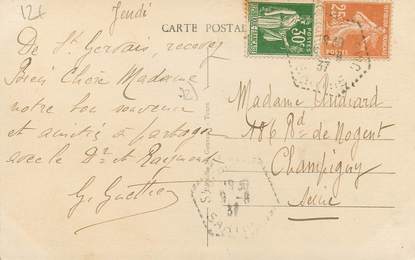 12€
Jeudi
CARTE POSTALE
De St Gervais, recevez
Bien Chère Madame
notre bon souvenir
et amitiés à partager
avec le Dr et Raymonde
G. Gautier
30c
25c
37
Madame Audiard
186 Bd de Nogent
Champigny
Seine
19 30
9 -8
37